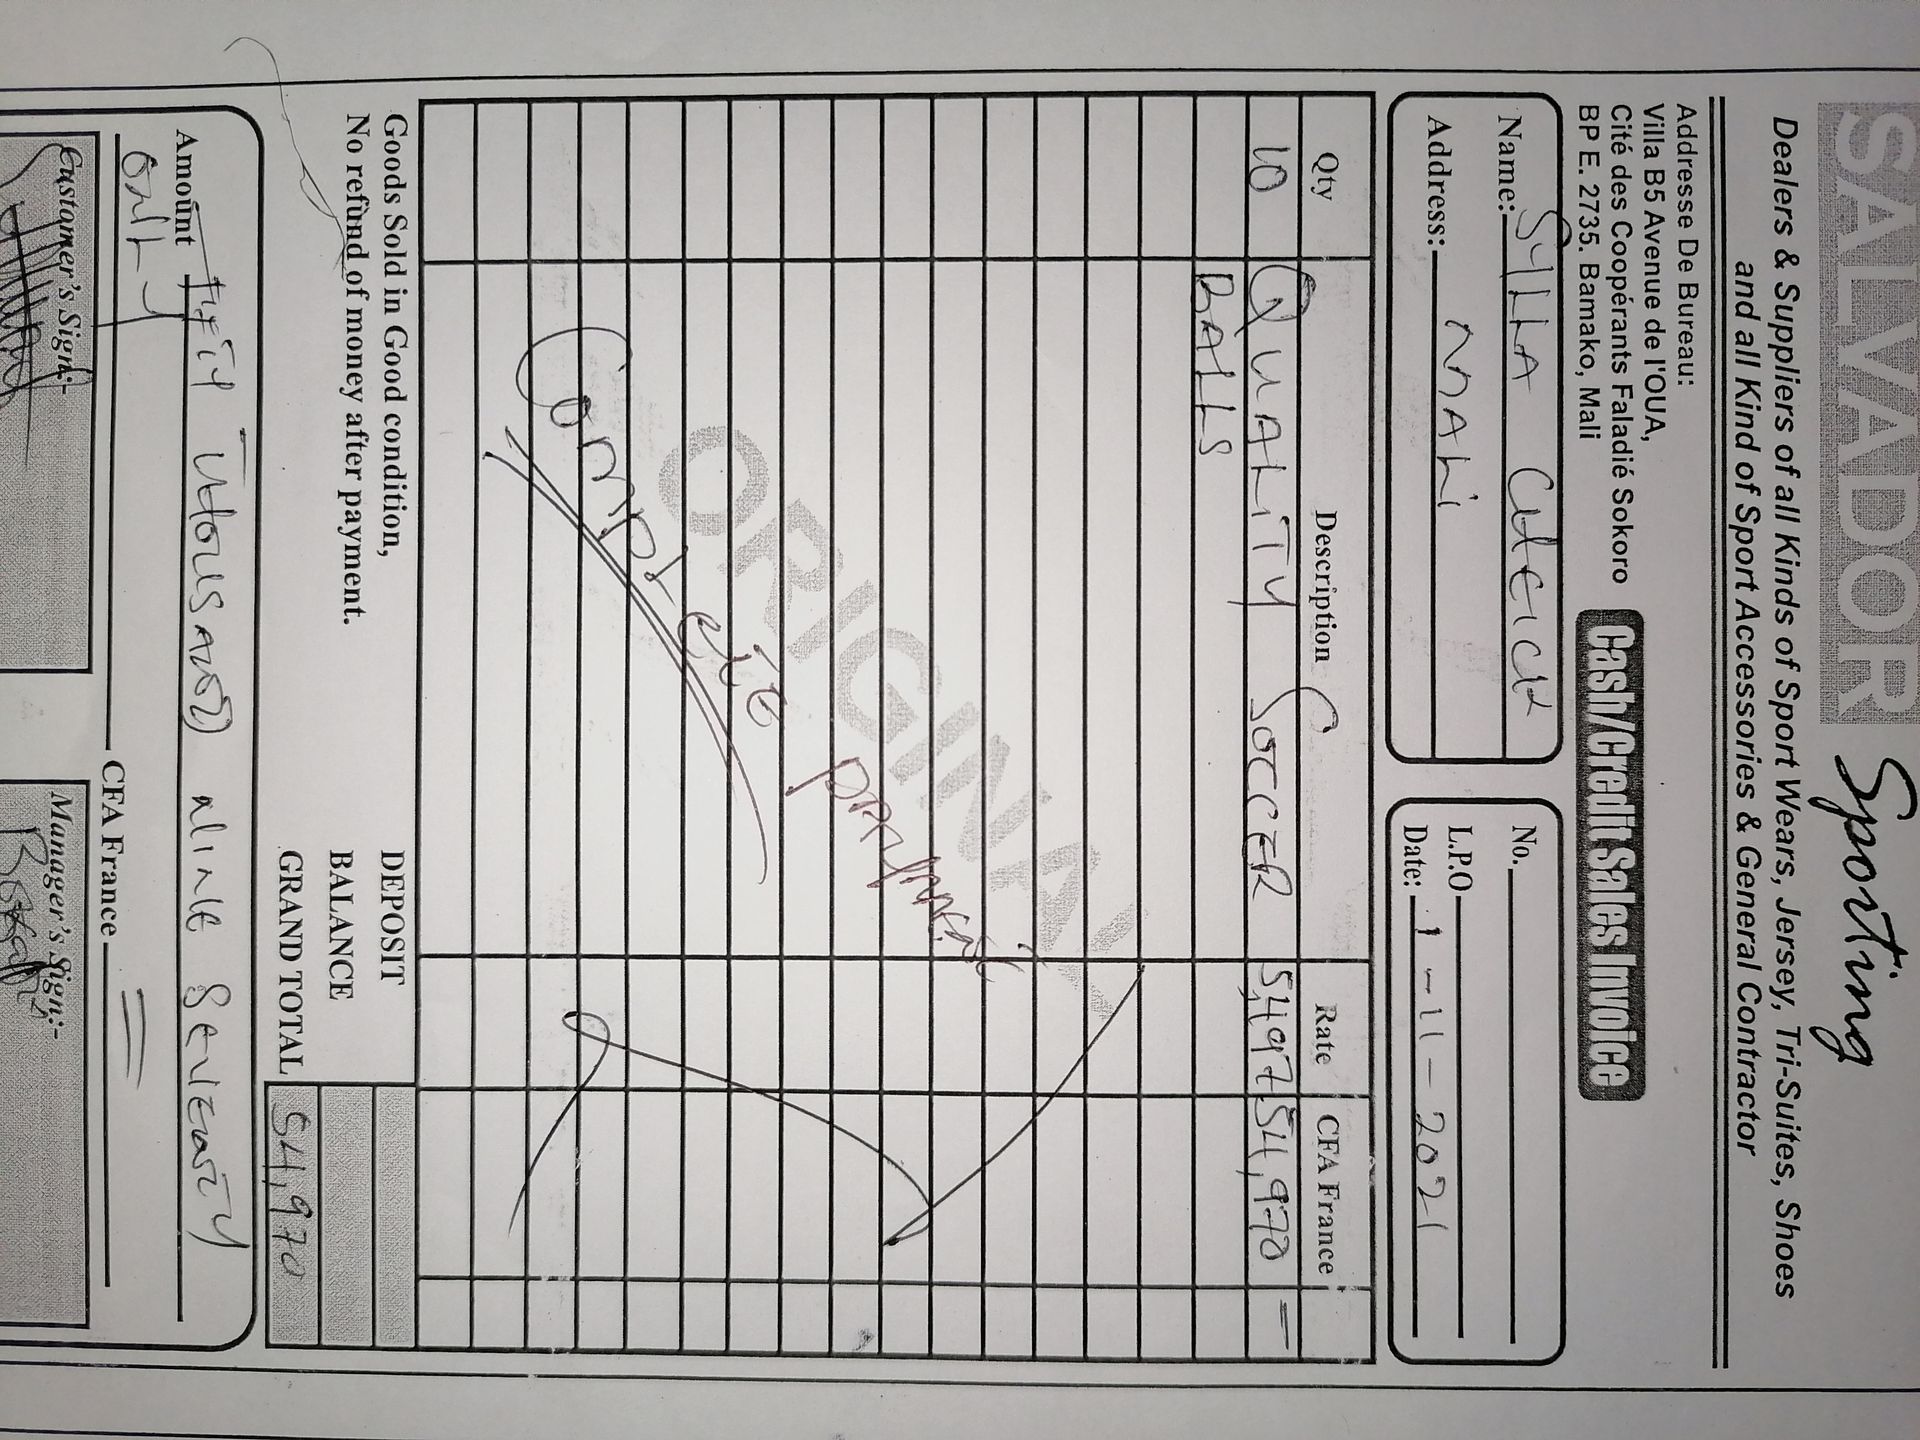 SALVADOR Sporting
Dealers & Suppliers of all Kinds of Sport Wears, Jersey, Tri-Suites, Shoes
and all Kind of Sport Accessories & General Contractor
Addresse De Bureau:
Villa B5 Avenue de l'OUA,
Cité des Coopérants Faladié Sokoro
BP E. 2735. Bamako, Mali
Cash/Credit Sales Invoice
Name: SYLLA CHEICK
Address: MALi
No.
L.P.O
Date: 1-11-2021
Qty Description Rate CFA France
10 QUALiTY SOCCER 5,497 54,970 =
BALLS
ORIGINAL
Complete payment
Goods Sold in Good condition,
No refund of money after payment.
DEPOSIT
BALANCE
GRAND TOTAL 54,970
Amount Nine Seventy
only CFA France =
Customer's Sign:-
Manager's Sign:-